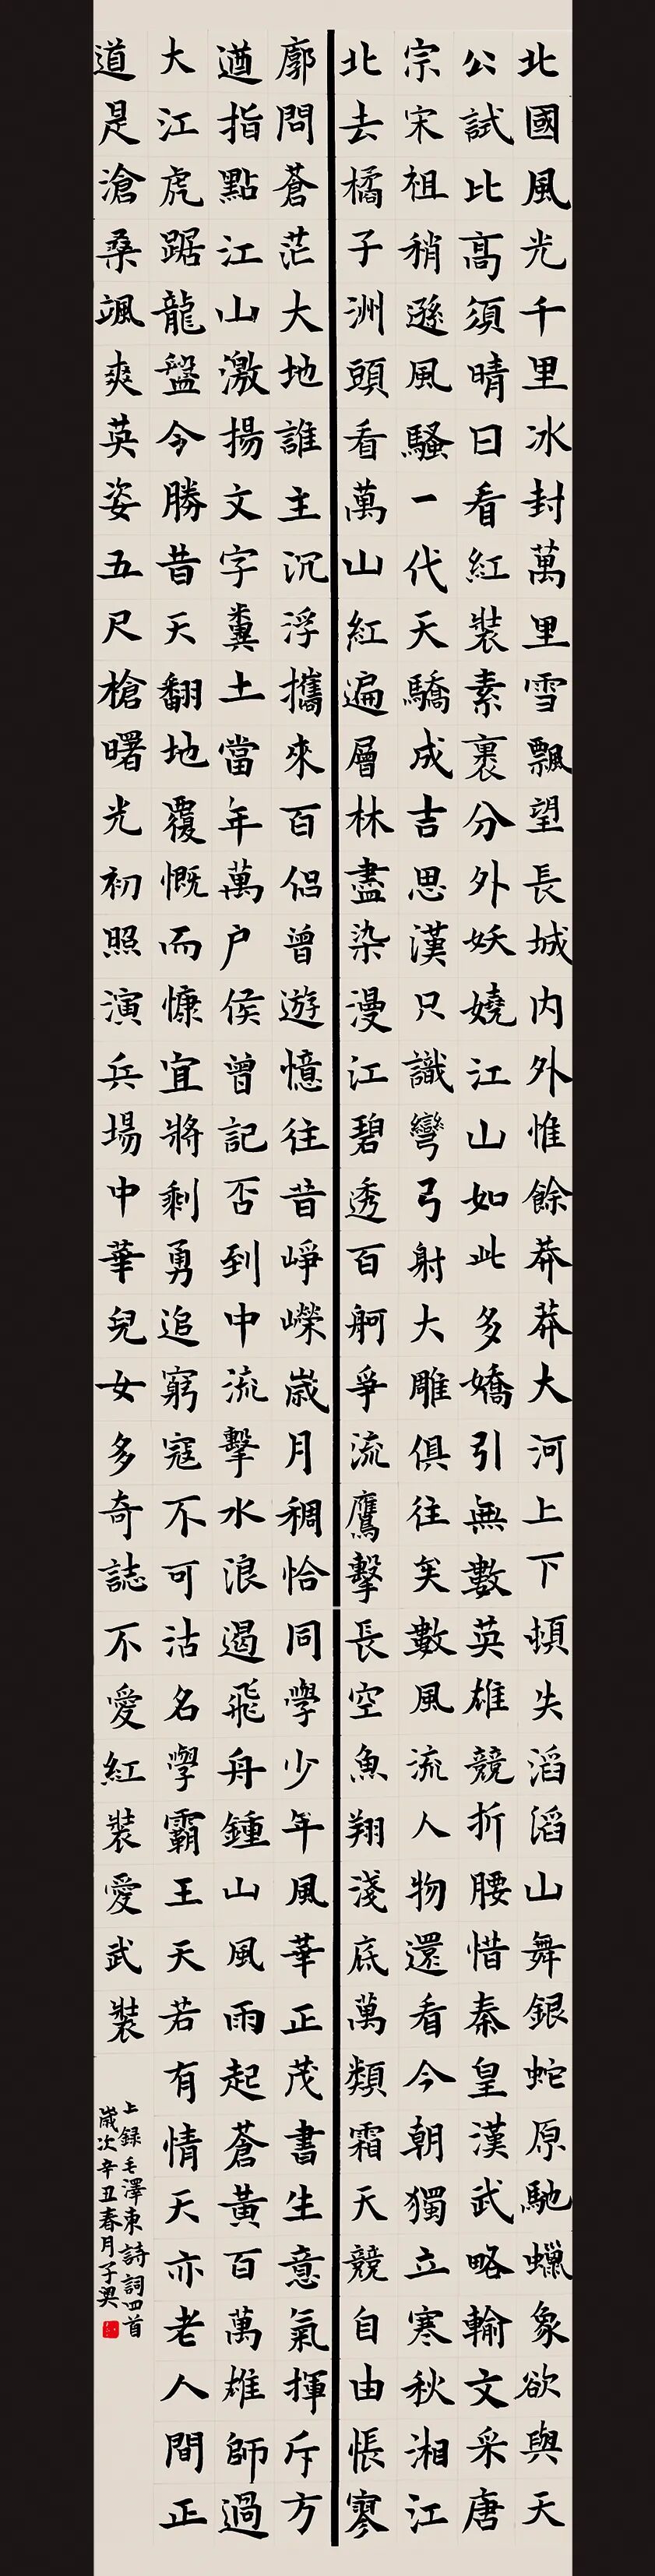 北國風光千里冰封萬里雪飄望長城内外惟餘莽莽大河上下頓失滔滔山舞銀蛇原馳蠟象欲與天
公試比高須晴日看紅裝素裹分外妖嬈江山如此多嬌引無數英雄競折腰惜秦皇漢武略輸文采唐
宗宋祖稍遜風騷一代天驕成吉思漢只識彎弓射大雕俱往矣數風流人物還看今朝獨立寒秋湘江
北去橘子洲頭看萬山紅遍層林盡染漫江碧透百舸爭流鷹擊長空魚翔淺底萬類霜天競自由悵寥
廓問蒼茫大地誰主沉浮攜來百侣曾遊憶往昔崢嶸歲月稠恰同學少年風華正茂書生意氣揮斥方
遒指點江山激揚文字糞土當年萬户侯曾記否到中流擊水浪遏飛舟鍾山風雨起蒼黃百萬雄師過
大江虎踞龍盤今勝昔天翻地覆慨而慷宜將剩勇追窮寇不可沽名學霸王天若有情天亦老人間正
道是滄桑颯爽英姿五尺槍曙光初照演兵場中華兒女多奇誌不愛紅裝愛武裝
上錄毛澤東詩詞四首
歲次辛丑春月子